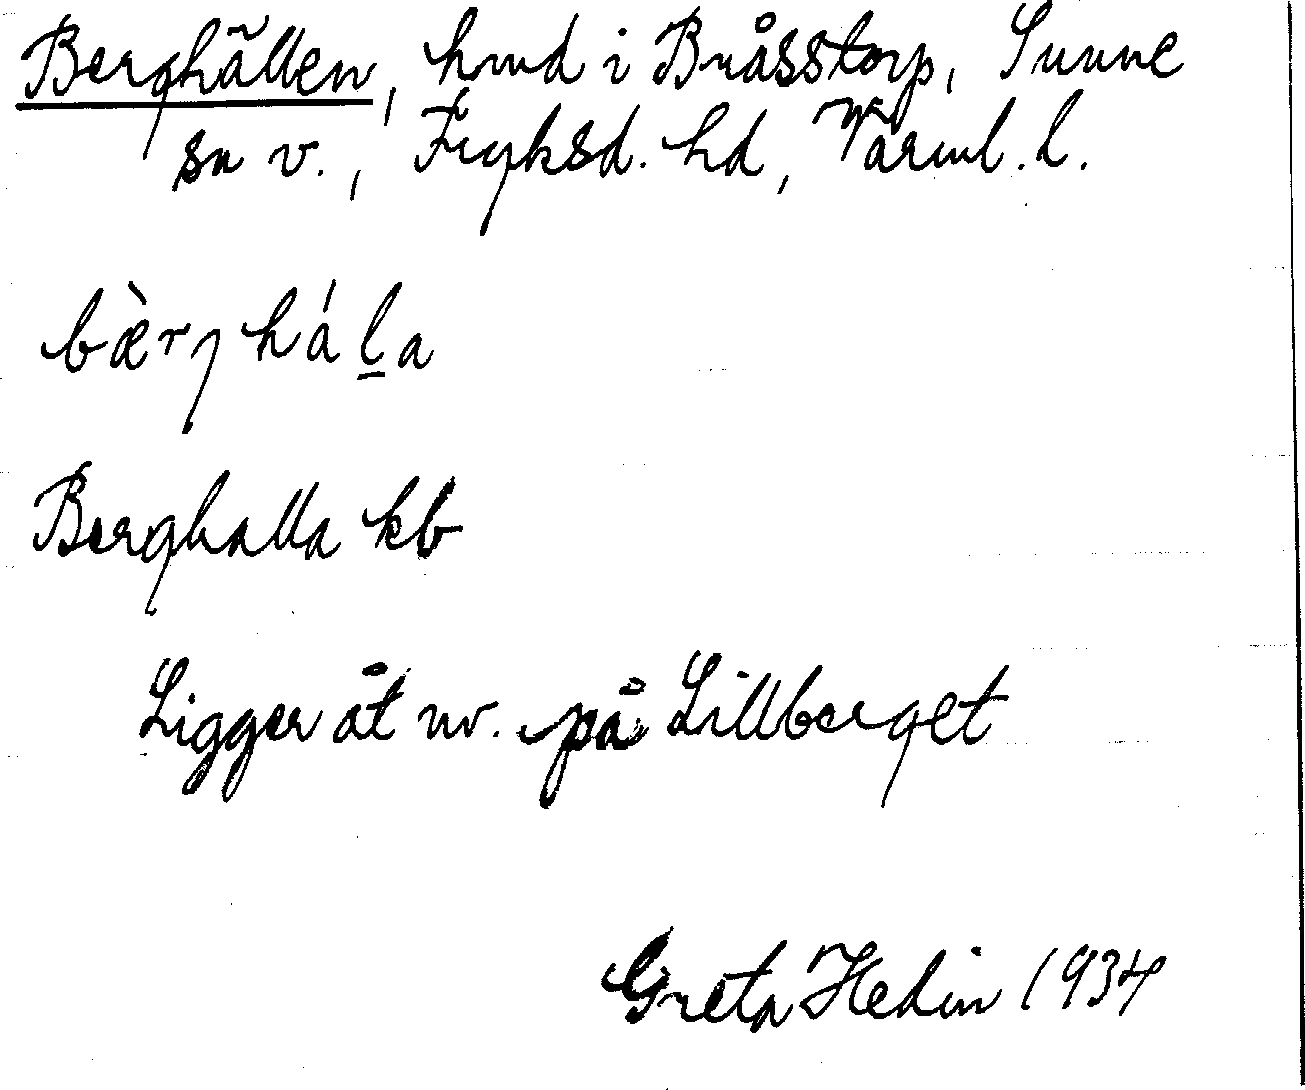 Berghällen, hmd i Bråsstorp, Sunne
sn v., Fryksd. hd, Värml. l.
bæ̀rj háḻa
Berghalla kb
Ligger åt nv. på Lillberget
Greta Hedin 1934